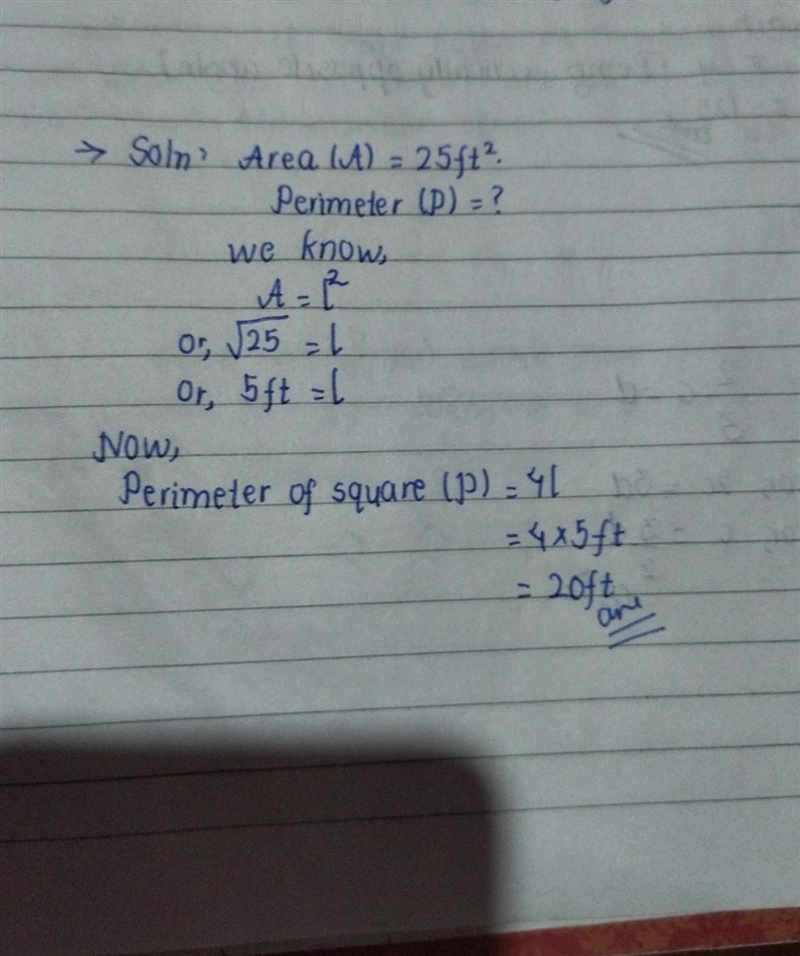 → Soln, Area (A) = 25ft².
Perimeter (P) = ?
we know,
A = l²
or, √25 = l
or, 5ft = l
Now,
Perimeter of square (p) = 4l
= 4×5ft
= 20ft